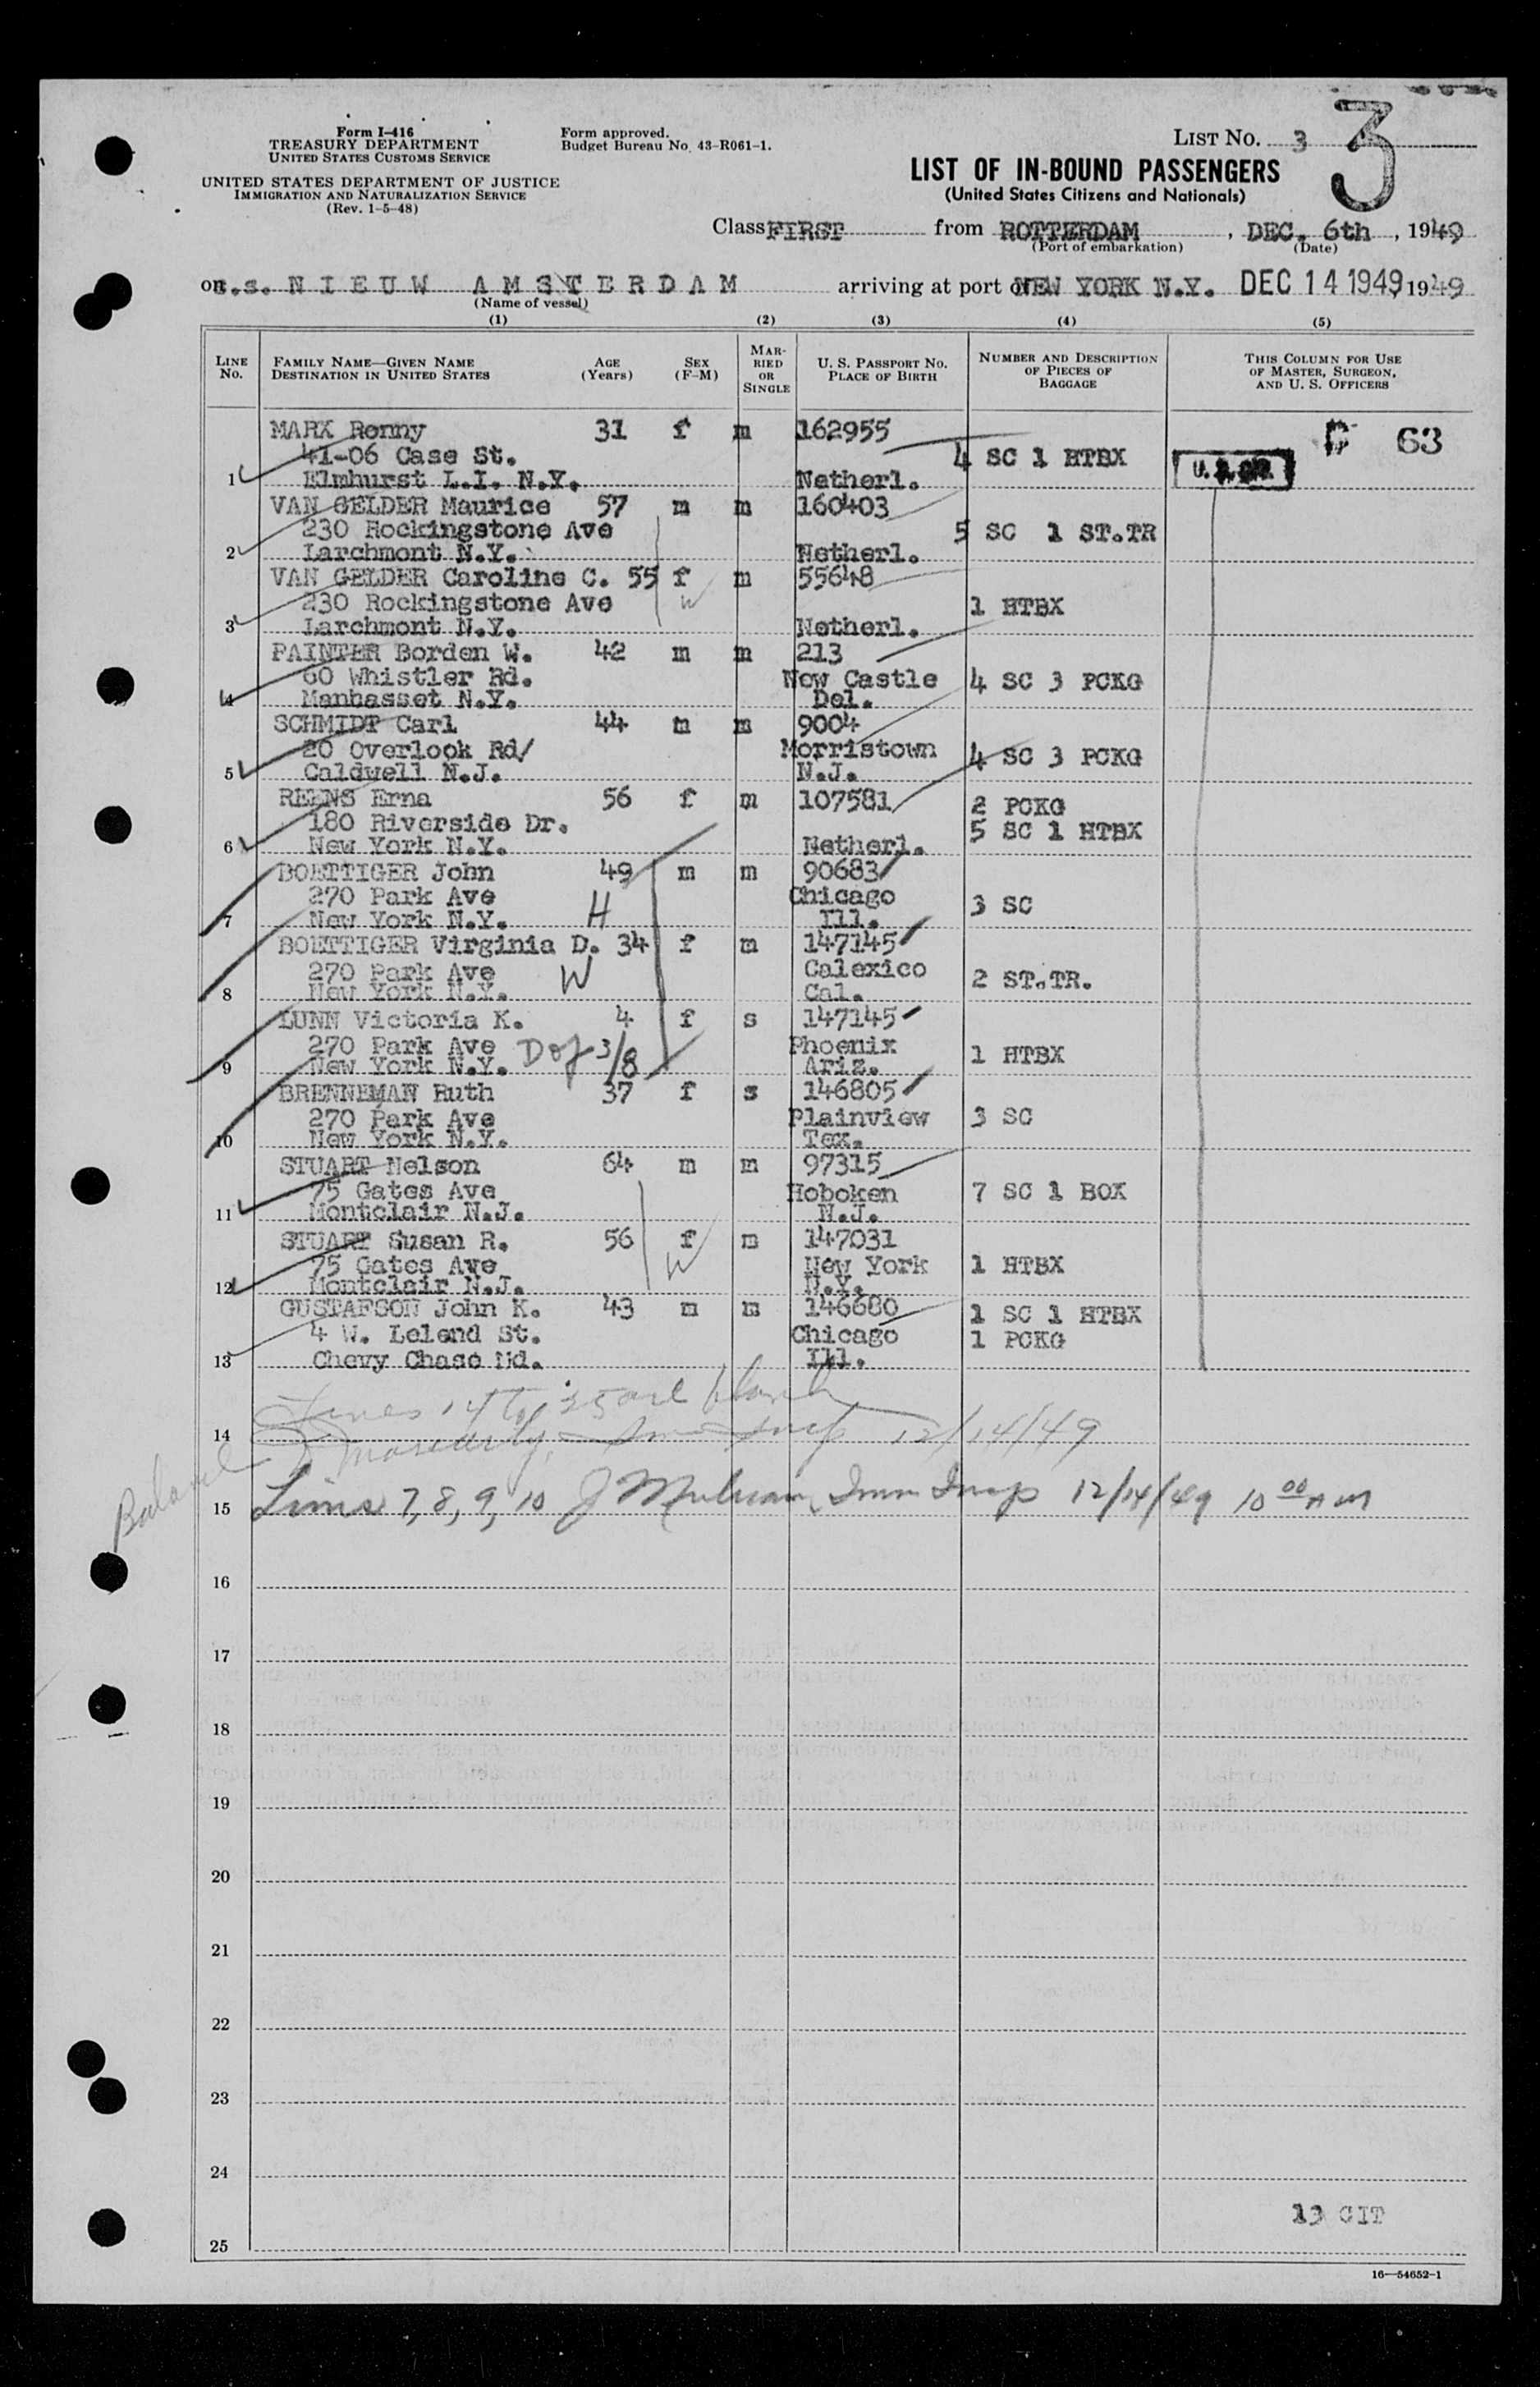 Form I-416
TREASURY DEPARTMENT
UNITED STATES CUSTOMS SERVICE
UNITED STATES DEPARTMENT OF JUSTICE
IMMIGRATION AND NATURALIZATION SERVICE
(Rev. 1-5-48)
Form approved.
Budget Bureau No. 43-R061-1.
LIST No. 3
3
LIST OF IN-BOUND PASSENGERS
(United States Citizens and Nationals)
Class FIRST from ROTTERDAM, DEC. 6th, 1949
(Port of embarkation) (Date)
on s.s. NIEUW AMSTERDAM arriving at port of NEW YORK N.Y. DEC 14 1949, 1949
(Name of vessel)
(1) (2) (3) (4) (5)
LINE No.
FAMILY NAME—GIVEN NAME
DESTINATION IN UNITED STATES
AGE (Years)
SEX (F-M)
MARRIED OR SINGLE
U. S. PASSPORT No.
PLACE OF BIRTH
NUMBER AND DESCRIPTION OF PIECES OF BAGGAGE
THIS COLUMN FOR USE OF MASTER, SURGEON, AND U. S. OFFICERS
MARX Ronny 31 f m 162955 63
41-06 Case St. 4 SC 1 HTBX
1 Elmhurst L.I. N.Y. Netherl.
VAN GELDER Maurice 57 m m 160403
230 Rockingstone Ave 5 SC 1 ST.TR
2 Larchmont N.Y. Netherl.
VAN GELDER Caroline C. 55 f m 55648
230 Rockingstone Ave W 1 HTBX
3 Larchmont N.Y. Netherl.
PAINTER Borden W. 42 m m 213
60 Whistler Rd. New Castle 4 SC 3 PCKG
4 Manhasset N.Y. Del.
SCHMIDT Carl 44 m m 9004
20 Overlook Rd/ Morristown 4 SC 3 PCKG
5 Caldwell N.J. N.J.
REENS Erna 56 f m 107581 2 PCKG
180 Riverside Dr. 5 SC 1 HTBX
6 New York N.Y. Netherl.
BOETTIGER John 49 m m 90683
270 Park Ave Chicago 3 SC
7 New York N.Y. H Ill.
BOETTIGER Virginia D. 34 f m 147145
270 Park Ave W Calexico 2 ST.TR.
8 New York N.Y. Cal.
LUNN Victoria K. 4 f s 147145
270 Park Ave D of 3/8 Phoenix 1 HTBX
9 New York N.Y. Ariz.
BRENNEMAN Ruth 37 f s 146805
270 Park Ave Plainview 3 SC
10 New York N.Y. Tex.
STUART Nelson 64 m m 97315
75 Gates Ave Hoboken 7 SC 1 BOX
11 Montclair N.J. N.J.
STUART Susan R. 56 f m 147031
75 Gates Ave W New York 1 HTBX
12 Montclair N.J. N.Y.
GUSTAFSON John K. 43 m m 146680 1 SC 1 HTBX
4 W. Leland St. Chicago 1 PCKG
13 Chevy Chase Md. Ill.
Lines 14 to 25 are blank
14 Moriarty Imm Insp 12/14/49
Balance
15 Lines 7, 8, 9, 10 J Imm Insp 12/14/49 10 00 AM
16
17
18
19
20
21
22
23
24
13 CIT
25
16—54652-1